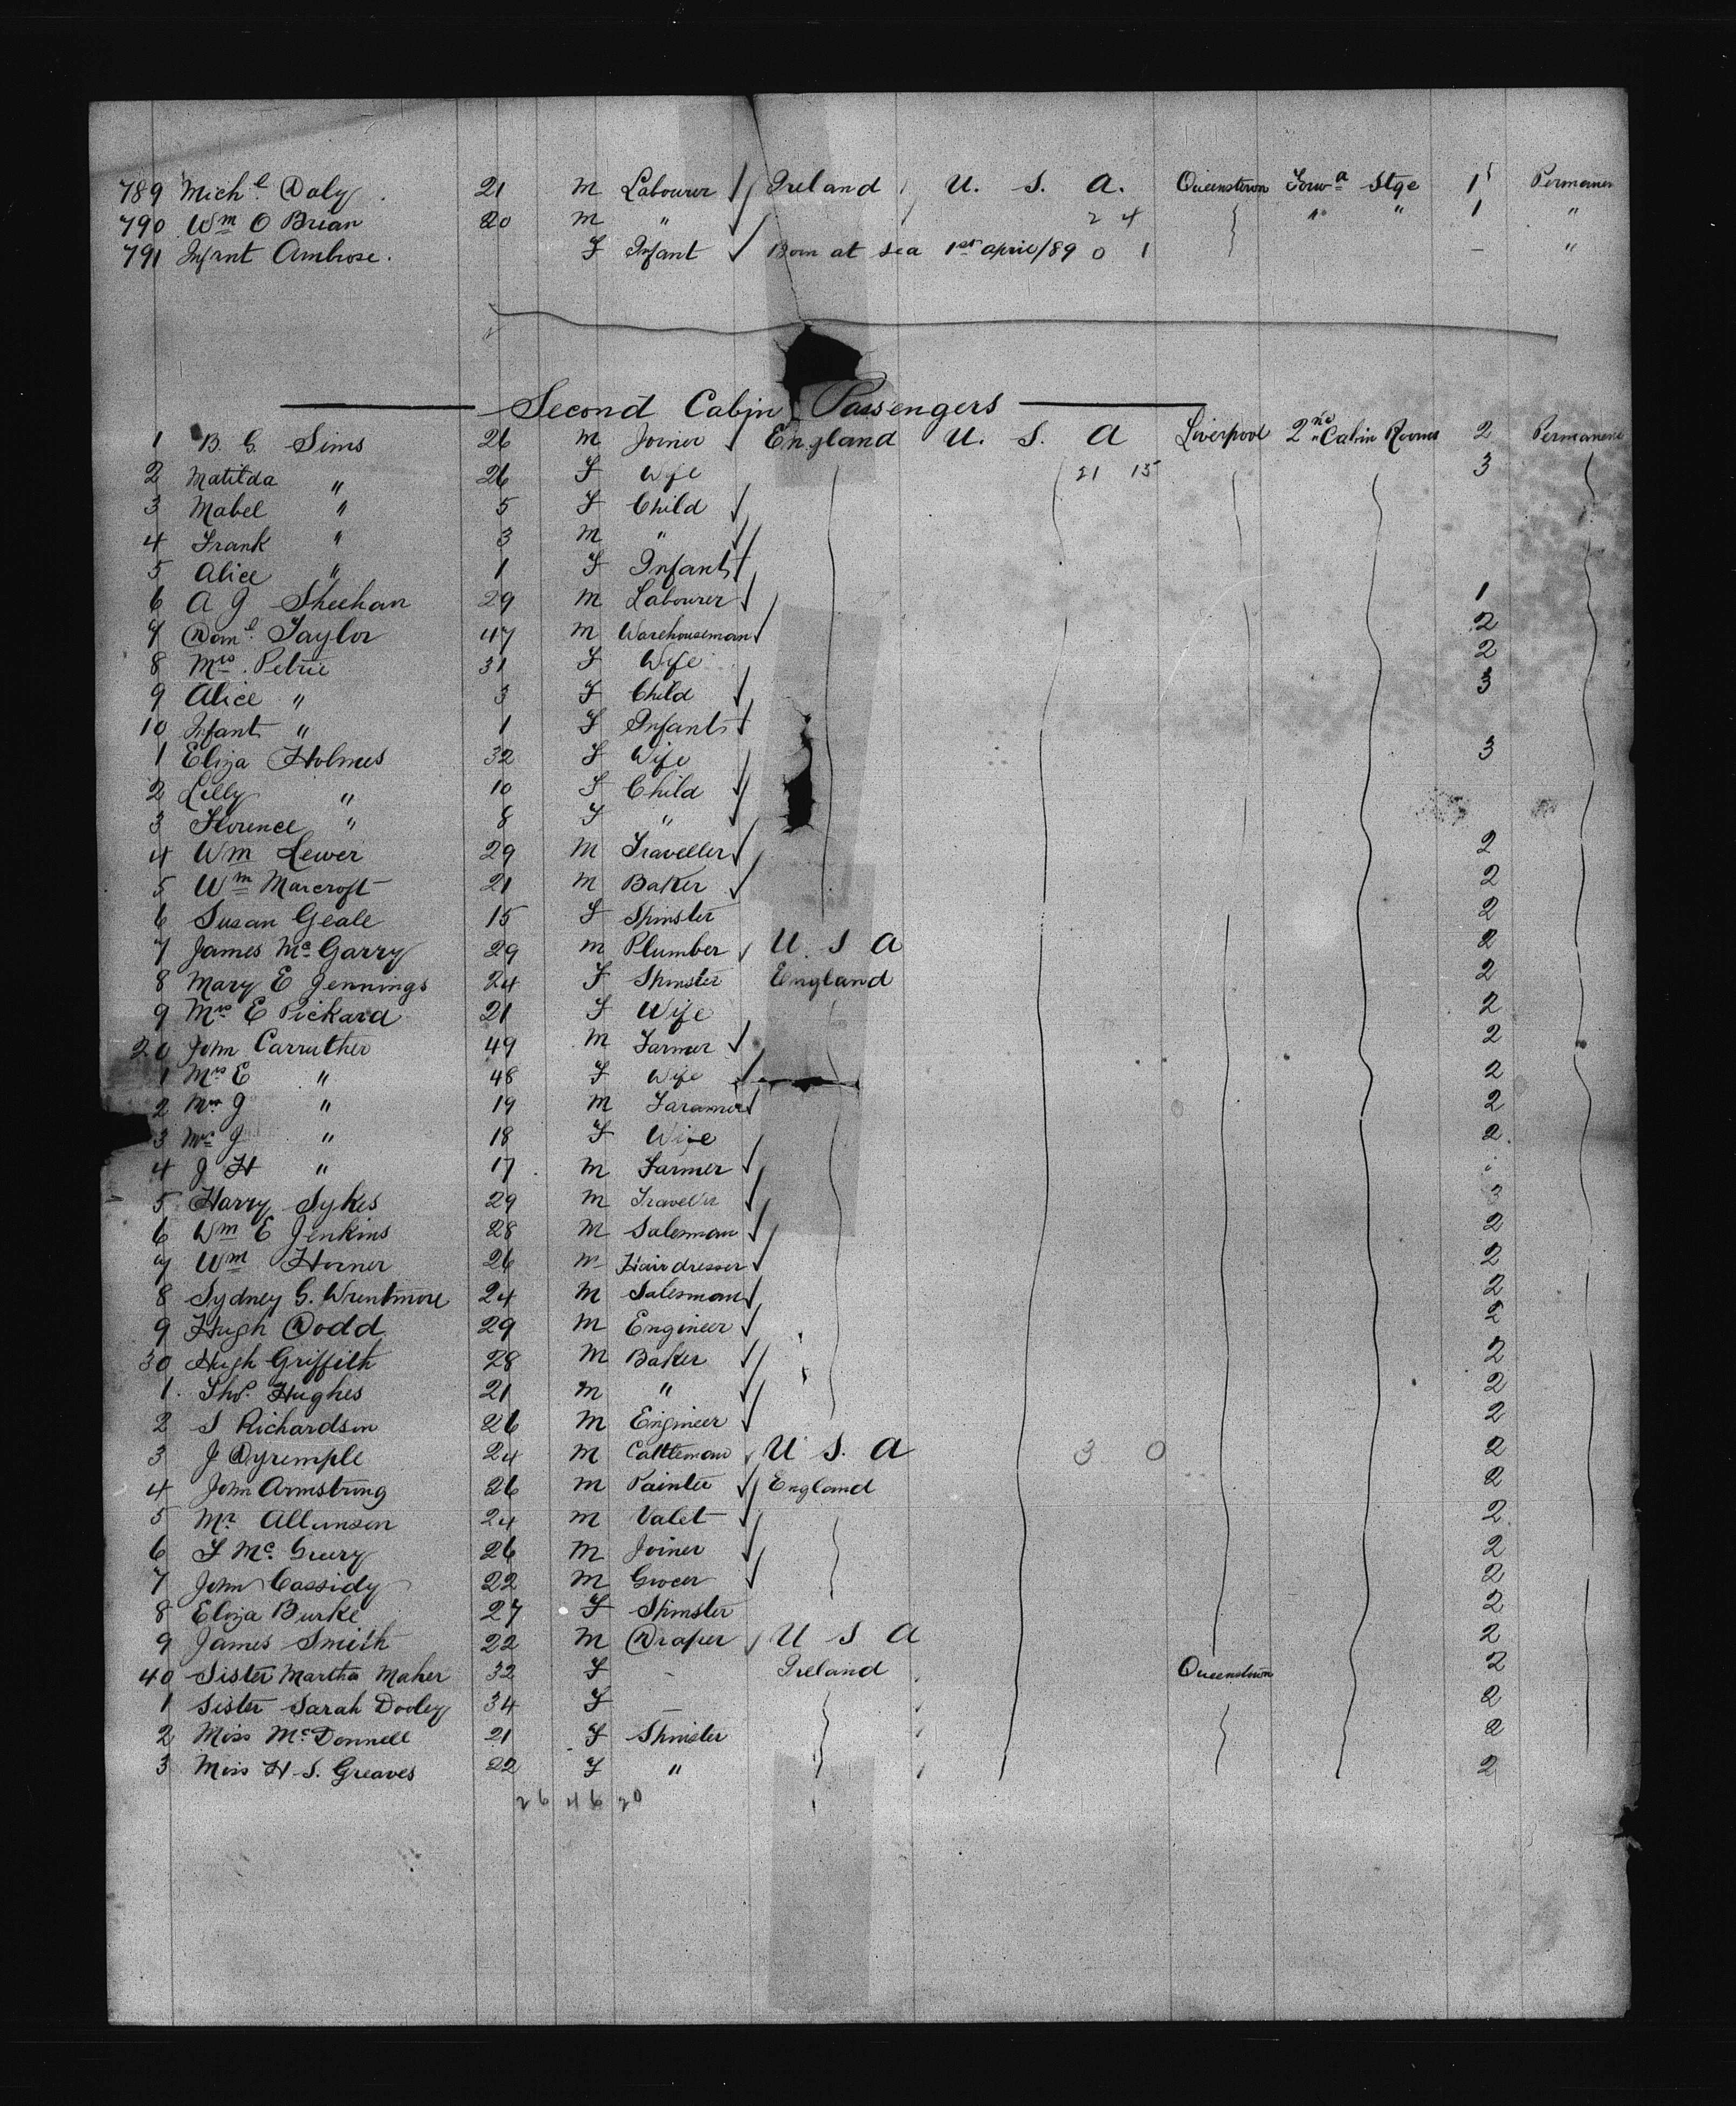 789 Mich^l Daly 21 M Labourer Ireland U. S. A. Queenstown Forw^a Stge 1 Permanen
790 W^m O Brian 20 M " 2 4 " " 1 "
791 Infant Ambrose. F Infant Born at sea 1st april/89 0 1 - "
Second Cabin Passengers
1 B. G. Sims 26 M Joiner England U. S. A Liverpool 2nd Cabin Rooms 2 Permanent
2 Matilda " 26 F Wife 21 15 3
3 Mabel " 5 F Child
4 Frank " 3 M "
5 Alice " 1 F Infant
6 A J Sheehan 29 M Labourer 1
7 Dan^l Taylor 47 M Warehouseman 2
8 Mrs. Petrie 31 F Wife 2
9 Alice " 3 F Child 3
10 Infant " 1 F Infant
1 Eliza Holmes 32 F Wife 3
2 Lilly " 10 F Child
3 Florence " 8 F "
4 Wm Lewer 29 M Traveller 2
5 W^m Marcroft 21 M Baker 2
6 Susan Geale 15 F Spinster 2
7 James McGarry 29 M Plumber U. S A 2
8 Mary E Jennings 24 F Spinster England 2
9 Mrs E Pickard 21 F Wife 2
20 John Carruther 49 M Farmer 2
1 Mrs E " 48 F Wife 2
2 Mr J " 19 M Faramer 2
3 Mrs J " 18 F Wife 2
4 J H " 17 M Farmer
5 Harry Sykes 29 M Traveller 3
6 Wm E Jenkins 28 M Salesman 2
7 Wm Horner 26 M Hairdresser 2
8 Sydney G. Wrentmore 24 M Salesman 2
9 Hugh Dodd 29 M Engineer 2
30 Hugh Griffith 28 M Baker 2
1. Thos. Hughes 21 M " 2
2 S Richardson 26 M Engineer 2
3 J Dyremple 24 M Cattleman U. S. A 3 0 2
4 John Armstrong 26 M Painter England 2
5 Mr. Allunson 24 M Valet 2
6 F Mc. Greery 26 M Joiner 2
7 John Cassidy 22 M Grocer 2
8 Eliza Burke 27 F Spinster 2
9 James Smith 22 M Draper U S A 2
40 Sister Martha Maher 32 F - Ireland Queenstown 2
1 Sister Sarah Dooley 34 F - 2
2 Miss McDonnell 21 F Spinster 2
3 Miss H. S. Greaves 22 F " 2
26 46 20